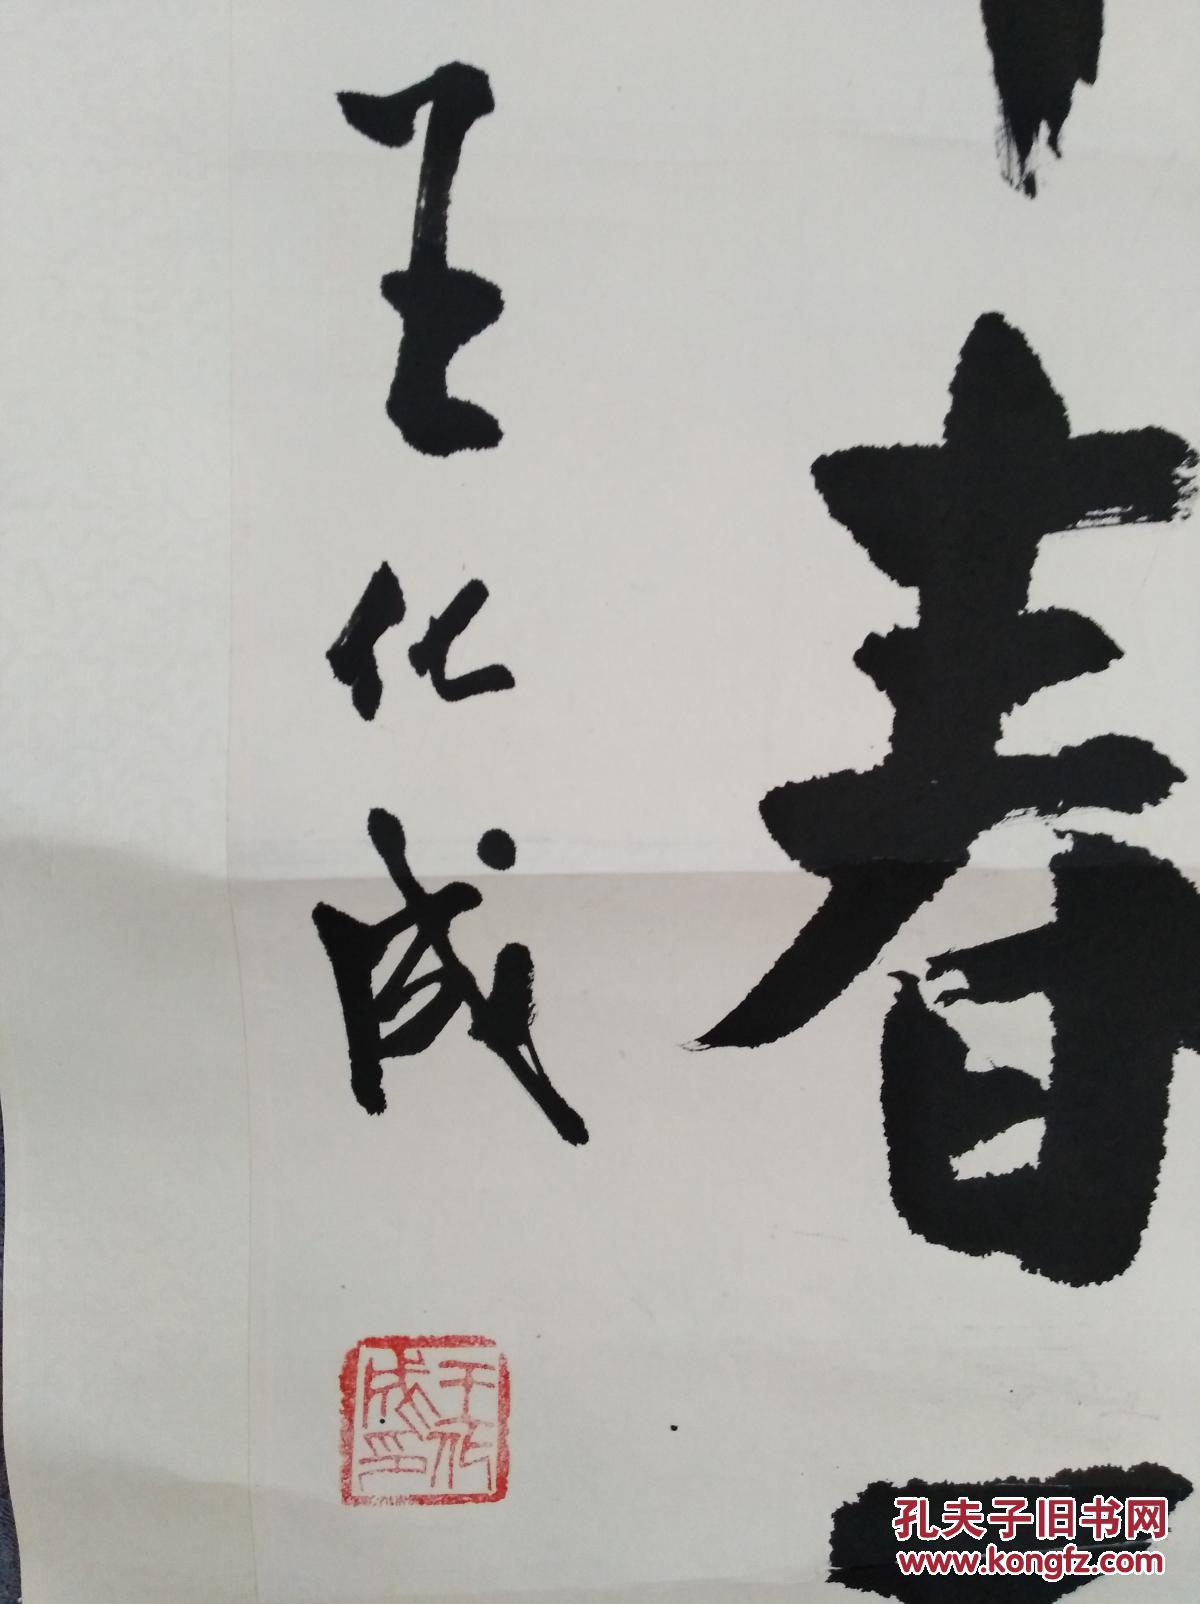 春
王化成
王化成印
孔夫子旧书网
www.kongfz.com